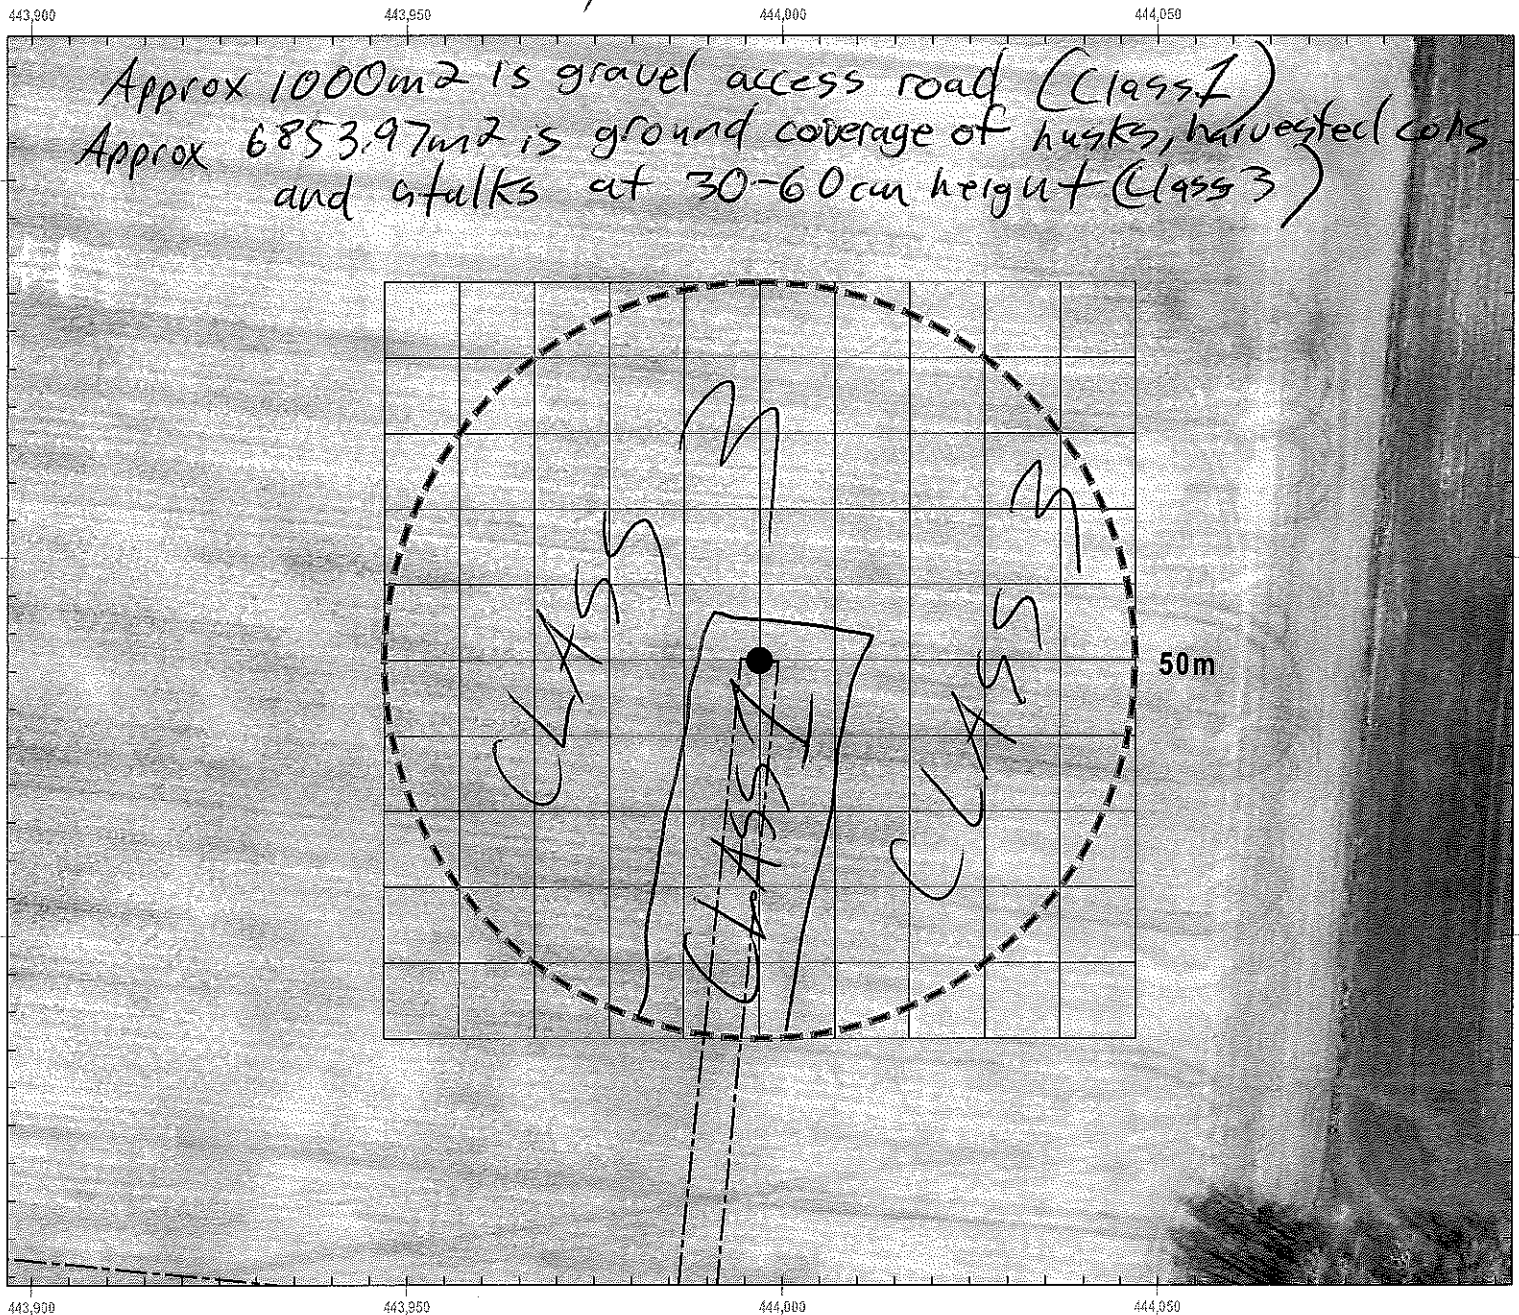 443,900 443,950 444,000 444,050
Approx 1000m2 is gravel access road (Class 1)
Approx 6853.97m2 is ground coverage of husks, harvested cobs
and stalks at 30-60cm height (Class 3)
CLASS 3
CLASS 3
50m
CLASS 1
443,900 443,950 444,000 444,050